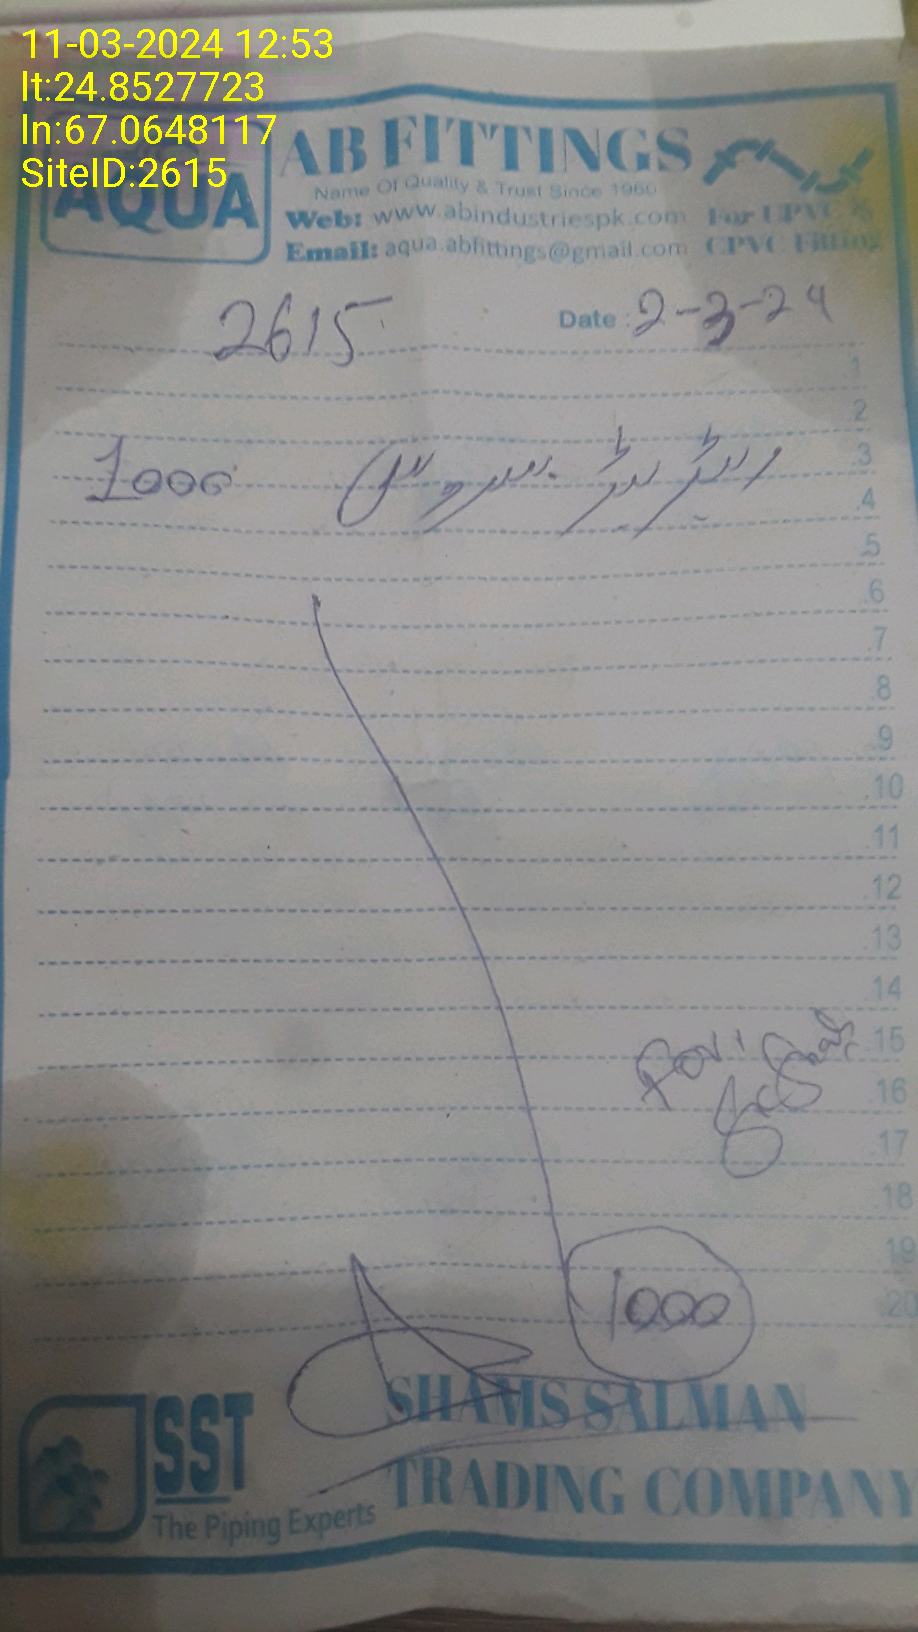 11-03-2024 12:53
lt:24.8527723
ln:67.0648117
SiteID:2615
AQUA
AB FITTINGS
Name Of Quality & Trust Since 1960
Web: www.abindustriespk.com
Email: aqua.abfittings@gmail.com
For UPVC &
CPVC Fitting
2615
Date : 2-3-24
1
2
.3
1000 سروس
.4
.5
.6
.7
.8
.9
.10
.11
.12
.13
.14
.15
.16
.17
.18
19
20
1000
SST
The Piping Experts
SHAMS SALMAN
TRADING COMPANY